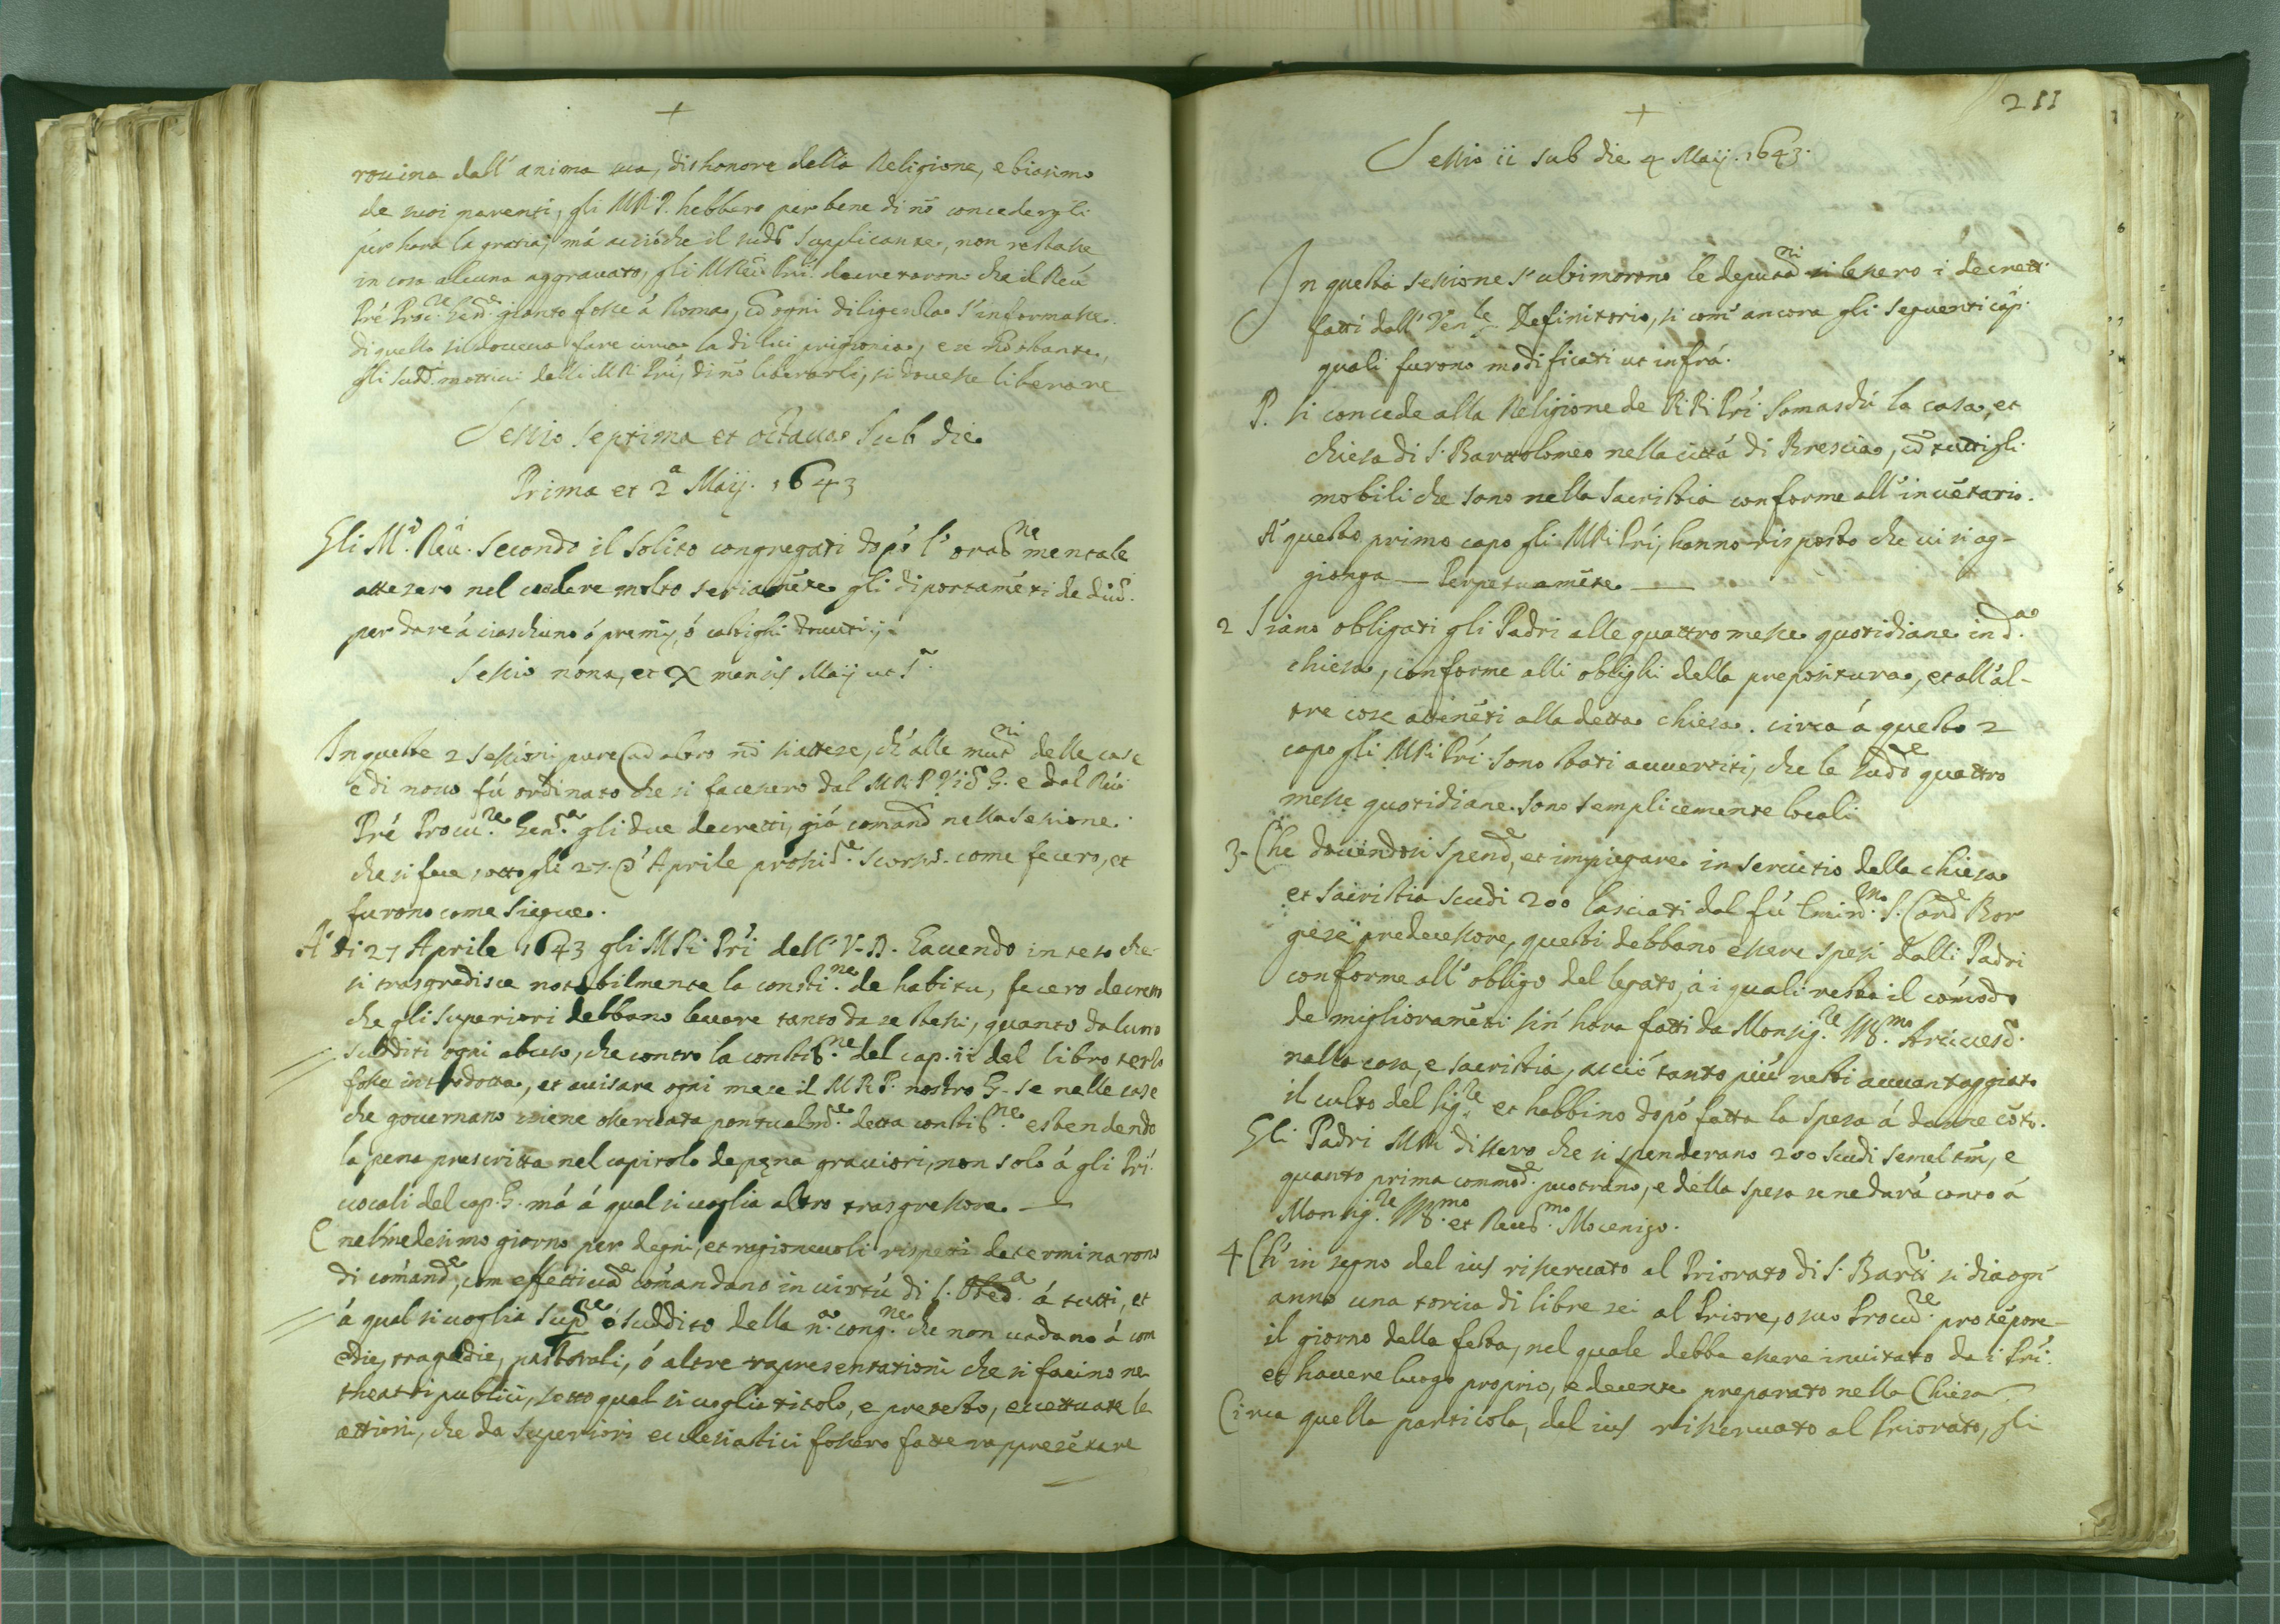 +
rouina dell' anima sua, dishonore della Religione, e biasimo
de suoi parenti, gli MRP. hebbero per bene di nō concedergli
per hora la gratia, má acciòche il sudᵒ supplicante, non restasse
in cosa alcuna aggrauato, gli MReū. Pri. decretarono che il Reū
Pré Procʳᵉ. Genˡᵉ. gionto fosse á Roma, cō ogni diligenza s'informasse
di quello si doueua fare circa la di lui prigionia, e se nō obstante,
gli sudᵈ. mottiui delli MR Pri, di nō liberarlo, si douesse liberare
Sessio septima et octaua sub die
Prima et 2ᵃ Maij. 1643
Gli M.ᵗᵒ Reū. secondo il solito congregati dopó l' oraᵗⁿᵉ mentale
attesero nel uedere molto seriamēte gli diportamēti de
per dare á ciascheduno ó premij, ó castighi douuti.
Sessio nona, et X mensis Maij ut sᵃ.
In queste 2 sessioni, pure ad altro nō si attese, ch' alle mutⁿⁱ delle case
e di nouo fú ordinato che si facessero dal M.R.P. G. e dal Reū
Pré Procuʳᵉ. Genˡᵉ. gli due decretti, giá comand nella sessione
che si fece sotto gli 27. d' Aprile prossᵉ. scorso. come fecero, et
furono come siegue.
A' di 27 Aprile 1643 gli M Ri Pri dell' V. D. hauendo inteso che
si trasgredisce notabilmente la constiⁿᵉ. de habitu, fecero decreto
che gli superiori debbano leuare tanto da se stessi, quanto da luno
sudditi ogni abuso, che contro la constitⁿᵉ. del cap. ii del libro terzo
fosse introdotta, et auisare ogni mese il M.R.P. nostro G. se nelle case
che gouernano uiene osseruata pontualmᵗᵉ. detta constitⁿᵉ. estendendo
la pena prescritta nel capitolo de pęna grauiori, non solo á gli Pri
uocali del cap. G. má á qual si uoglia altro trasgressore. —
E nel medesimo giorno per degni, et ragioneuoli rispetti determinarono
di comandᵉ, com effettiuaᵉ comandano in uirtú di s. Obedᵃ á tutti, et
á qual si uoglia supʳᵉ ó suddito della n.ᵃ congⁿᵉ. che non uadano á com
edie, tragedie, pastorali, ó altre rapresentationi che si facino ne
theatri publici, sotto qual si uoglia titolo, e pretesto, eccettuate le
attioni, che da superiori ecclesiastici fossero fatte rappresētare
211
+
Sessio ii sub die 4 Maij. 1643.
In questa sessione s' ultimorono le deputⁿⁱ si lessero i decretti
fatti dall' Venˡᵉ Definitorio, si com' ancora gli seguenti cap.
quali furono modificati ut infrá.
P. Si concede alla Religione de RR Pri Somaschi la casa, et
chiesa di S. Barttolomeo nella cittá di Brescia, cō tutti gli
mobili che sono nella sacristia conforme all' inuētario.
A' questo primo capo gli MR Pri, hanno risposto che ui si ag-
gionga — Perpetuamēte —
2 Siano obligati gli Padri alle quattro messe quotidiane in dᵃ
chiesa, conforme alli oblighi della prepositura, et all' al-
tre cose attenēti alla detta chiesa. circa á questo 2
capo gli MR Pri. sono stati auuertiti, che le sudᵉ quattro
messe quotidiane sono semplicemente locali
3- Che douendosi spendᵉ, et impiegare in seruitio della chiesa
et sacristia scudi 200 lasciati dal fú Eminᵐᵒ. S. Cardˡᵉ Bor
gese predecessore, questi debbano essere spesi dalli Padri
conforme all' obligo del legato, á i quali resta il cómodo
de miglioramēti sin' hora fatti da Monsigʳᵉ. Illᵐᵒ. Arciuesc.
nella casa, e sacristia, acció tanto piú resti auuantaggiato
il culto del Sigʳᵉ. et habbino dopó fatta la spesa á darne cōto.
Gli Padri MR dissero che si spenderano 200 scudi semel tm̄, e
quanto prima commodᵉ. puotrano, e della spesa se ne dará conto á
Monsigʳᵉ. Illᵐᵒ. et Reuᵐᵒ. Mocenigo.
4 Ch' in segno del ius risseruato al Priorato di S. Bartᵒ si dia ogn'
anno una torcia di libre sei al Priore, o suo Procuʳᵉ. pro tēpore
il giorno della festa, nel quale debba essere inuitato da i Pri.
et hauere luogo proprio, e decente preparato nella Chiesa
Circa quella particola, del ius risseruato al Priorato, gli